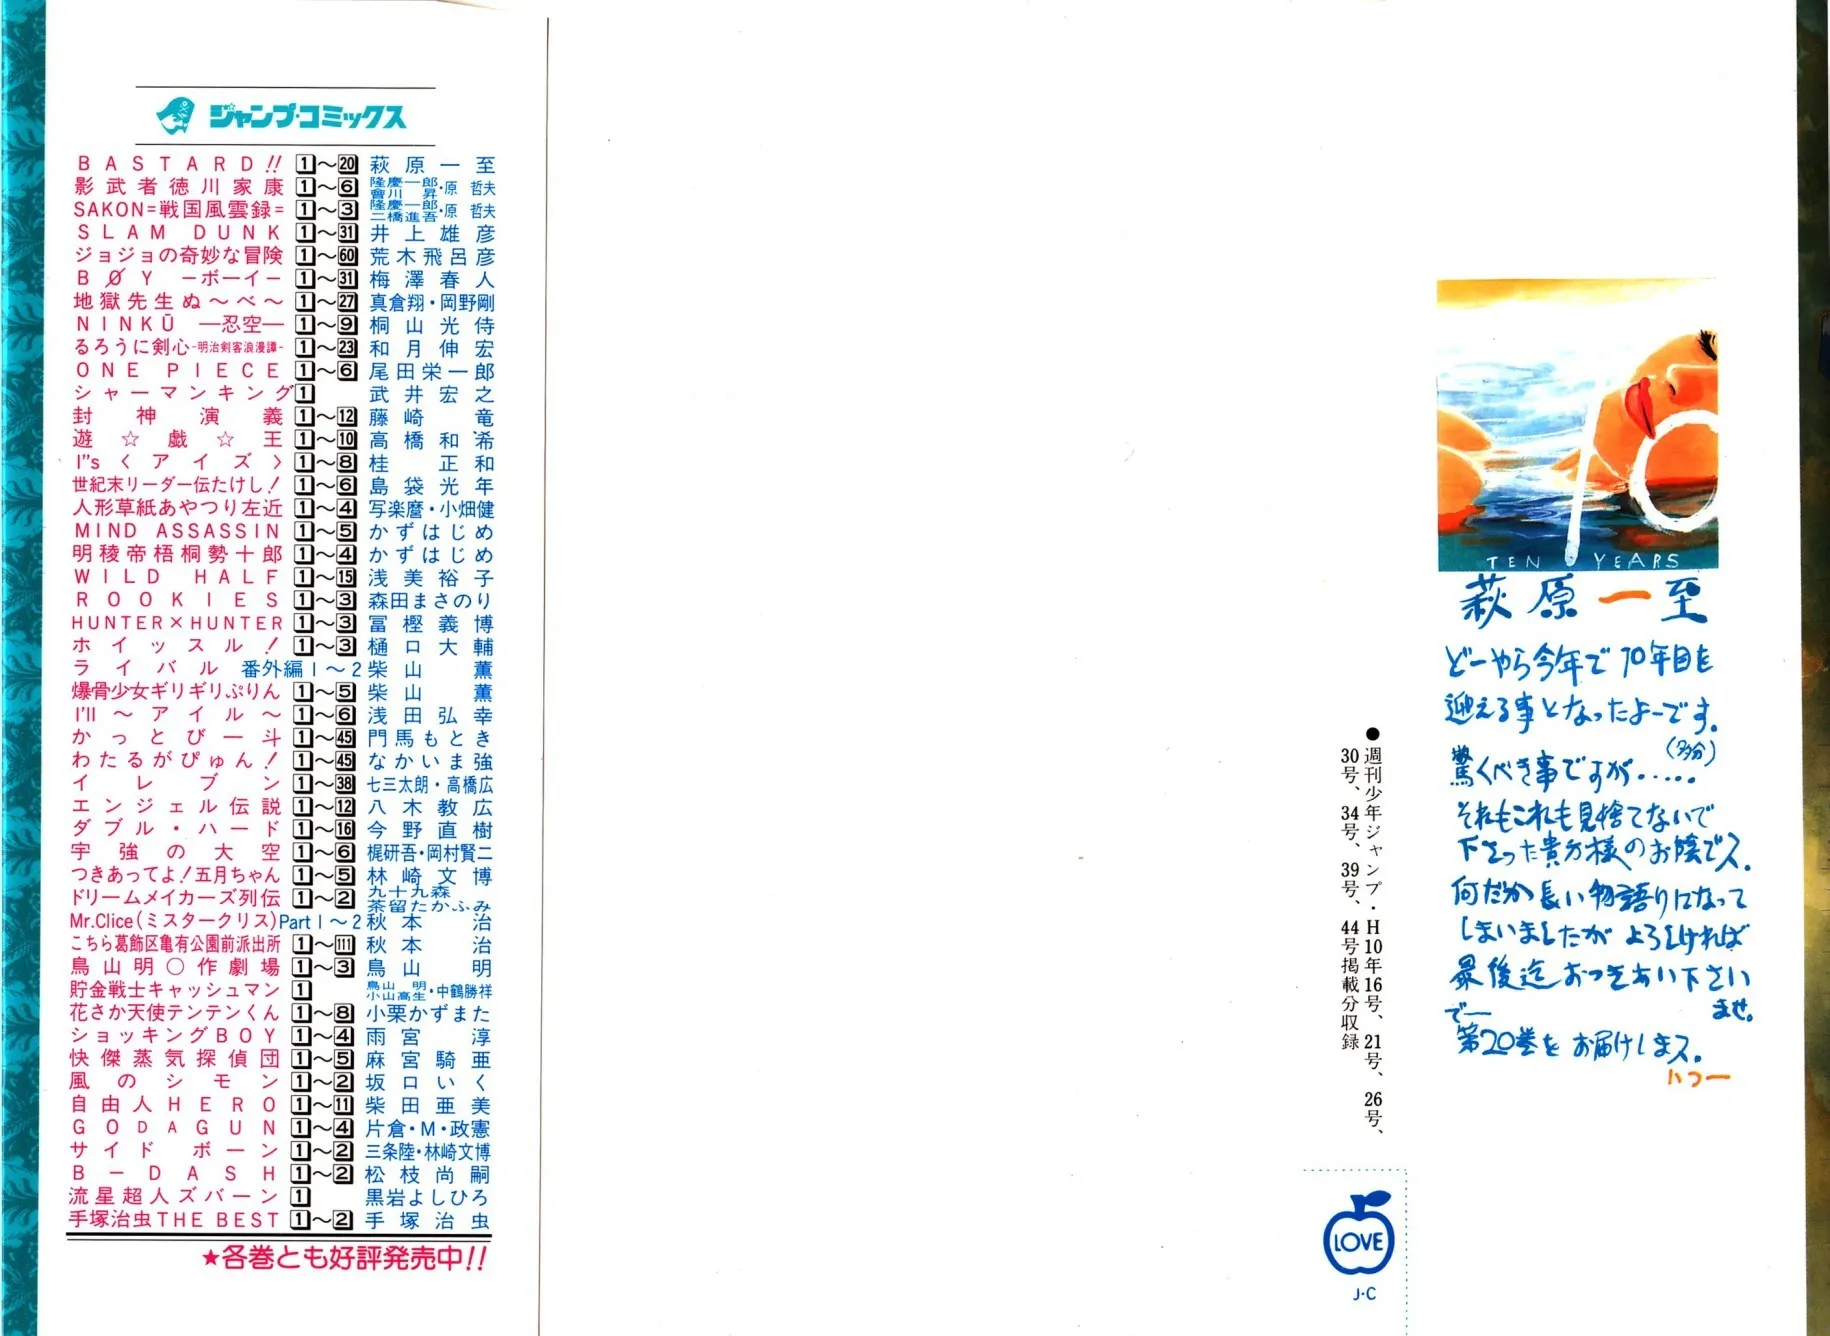 ジャンプ・コミックス
BASTARD!! 1～20 萩原一至
影武者徳川家康 1～6 隆慶一郎・會川昇・原哲夫
SAKON=戦国風雲録= 1～3 隆慶一郎・二橋進吾・原哲夫
SLAM DUNK 1～31 井上雄彦
ジョジョの奇妙な冒険 1～60 荒木飛呂彦
BØY －ボーイ－ 1～31 梅澤春人
地獄先生ぬ～べ～ 1～27 真倉翔・岡野剛
NINKŪ ―忍空― 1～9 桐山光侍
るろうに剣心-明治剣客浪漫譚- 1～23 和月伸宏
ONE PIECE 1～6 尾田栄一郎
シャーマンキング 1 武井宏之
封神演義 1～12 藤崎竜
遊☆戯☆王 1～10 高橋和希
I"s〈アイズ〉 1～8 桂正和
世紀末リーダー伝たけし! 1～6 島袋光年
人形草紙あやつり左近 1～4 写楽麿・小畑健
MIND ASSASSIN 1～5 かずはじめ
明稜帝梧桐勢十郎 1～4 かずはじめ
WILD HALF 1～15 浅美裕子
ROOKIES 1～3 森田まさのり
HUNTER×HUNTER 1～3 冨樫義博
ホイッスル! 1～3 樋口大輔
ライバル 番外編1～2 柴山薫
爆骨少女ギリギリぷりん 1～5 柴山薫
I'll ～アイル～ 1～6 浅田弘幸
かっとび一斗 1～45 門馬もとき
わたるがぴゅん! 1～45 なかいま強
イレブン 1～38 七三太朗・高橋広
エンジェル伝説 1～12 八木教広
ダブル・ハード 1～16 今野直樹
宇強の大空 1～6 梶研吾・岡村賢二
つきあってよ!五月ちゃん 1～5 林崎文博
ドリームメイカーズ列伝 1～2 九十九森 茶留たかふみ
Mr.Clice(ミスタークリス) Part1～2 秋本治
こちら葛飾区亀有公園前派出所 1～111 秋本治
鳥山明〇作劇場 1～3 鳥山明
貯金戦士キャッシュマン 1 鳥山明・小山高生・中鶴勝祥
花さか天使テンテンくん 1～8 小栗かずまた
ショッキングBOY 1～4 雨宮淳
快傑蒸気探偵団 1～5 麻宮騎亜
風のシモン 1～2 坂口いく
自由人HERO 1～11 柴田亜美
GODAGUN 1～4 片倉・M・政憲
サイドボーン 1～2 三条陸・林崎文博
B－DASH 1～2 松枝尚嗣
流星超人ズバーン 1 黒岩よしひろ
手塚治虫THE BEST 1～2 手塚治虫
★各巻とも好評発売中!!
●週刊少年ジャンプ・H10年16号、21号、26号、
30号、34号、39号、44号掲載分収録
LOVE
J・C
10
TEN YEARS
萩原一至
どーやら今年で10年目を
迎える事となったよーです。
(多分)
驚くべき事ですが・・・・・
それもこれも見捨てないで
下さった貴方様のお陰でス。
何だか長い物語りになって
しまいましたがよろしければ
最後迄おつきあい下さい
ませ。
でー
第20巻をお届けしまス。
ハフー